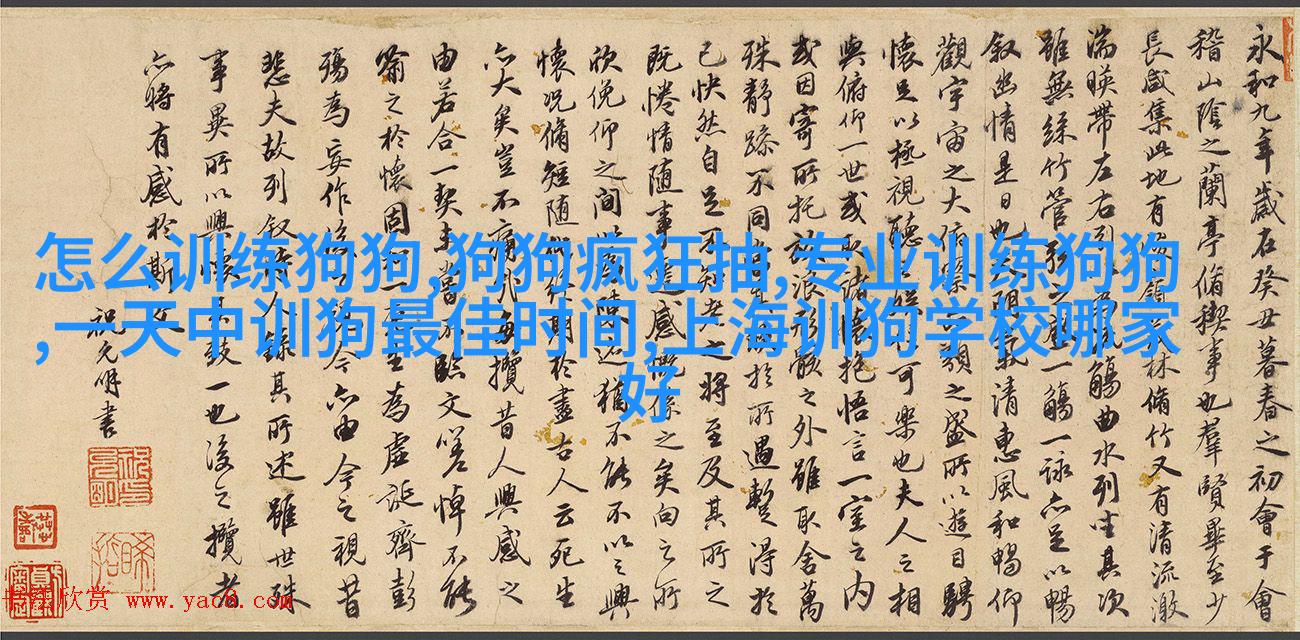 怎么训练狗狗,狗狗疯狂抽,专业训练狗狗
,一天中训狗最佳时间,上海训狗学校哪家
好
永和九年歲在癸丑暮春之初會于會
稽山陰之蘭亭脩稧事也羣賢畢至少
長咸集此地有領林脩竹又有清流激
湍暎帶左右觴曲水列坐其次
雖無絲竹管之一觴一詠亦足以暢
叙幽情是日也氣清惠風和暢仰
觀宇宙之大俯類之盛所以遊目騁
懷足以極視聽可樂也夫人之相
與俯仰一世或取諸懷抱悟言一室之内
或因寄所托放浪形骸之外雖取舍萬
殊静躁不同於所遇蹔得於
己快然自足不知老之將至及其所之
既惓情随事感慨係之矣向之所
欣俛仰之間以迹猶不能不以之興
懷况脩短随期於盡古人云死生
亦大矣豈不痛每攬昔人興感之
由若合一契未嘗不臨文嗟悼不能
喻之於懷固一生為虚誕齊彭
殤為妄作今亦由今之視昔
悲夫故列叙人錄其所述雖世殊
事異所以興懷致一也後之攬者
亦將有感於斯文
祝允明書
欣赏 www.yac8.com